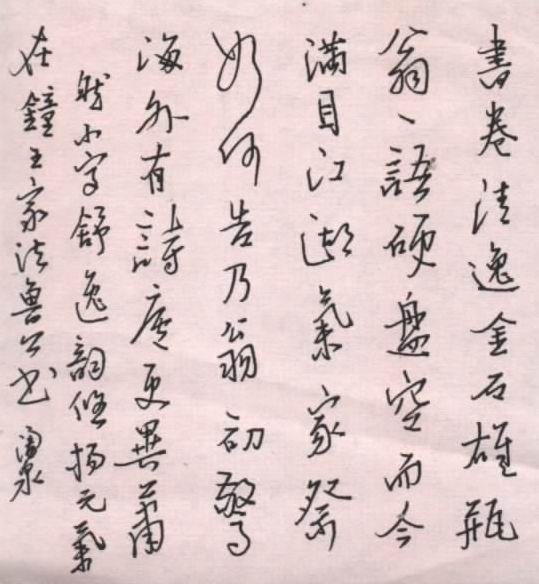 書卷清逸金石雄瓶
翁一語硬盤空而今
滿目江湖氣家祭
如何告乃翁初驚
海外有詩更異蕭
然小字舒逸韻悠揚元氣
在鐘王家法魯公書